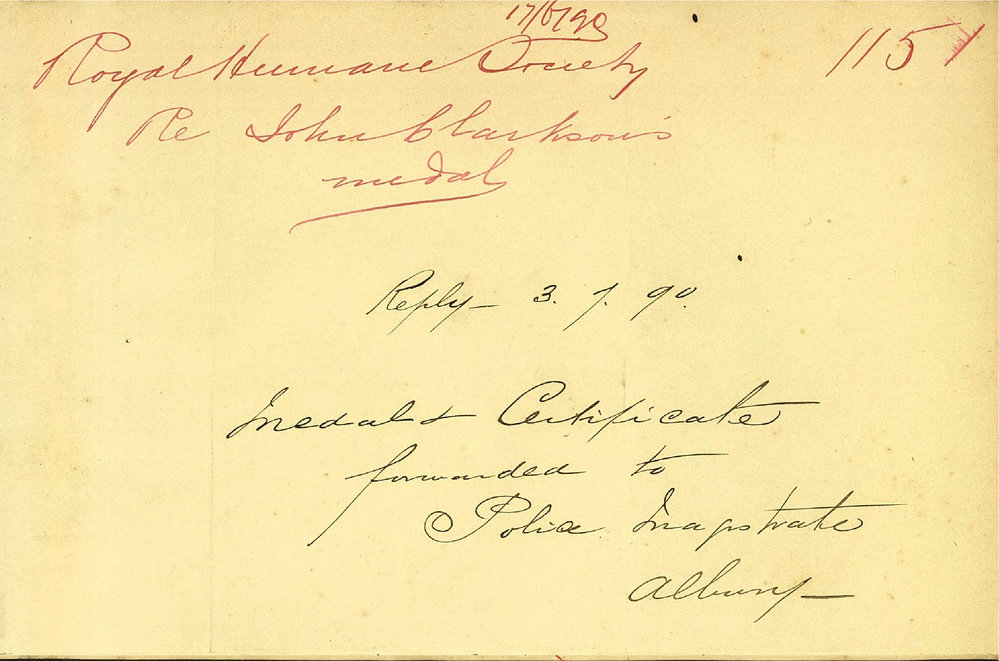 17/6/90
Royal Humane Society 115
Re John Clarkson's
medal
Reply - 3. 7. 90.
Medal & Certificate
forwarded to
Police Magistrate
Albury -